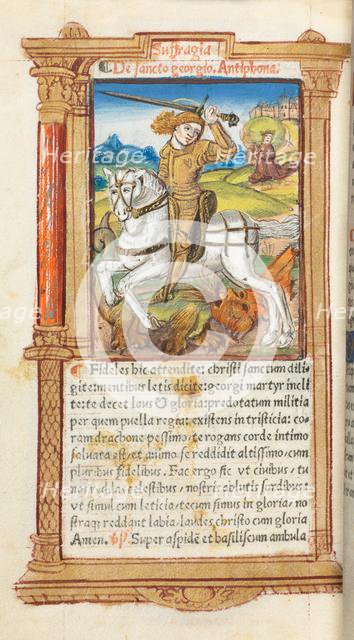 Suffragia
De sancto georgio. Antiphona.
Fideles hic attendite: christi sanctum dili
gite: mentibus letis dicite: georgi martyr incli
te: te decet laus & gloria: predotatum militia
per quem puella regia: existens in tristicia: co
ram drachone pessimo: te rogans corde intimo
saluata est/ et animo se reddidit altissimo/ cum
pluribus fidelibus. Fac ergo sic vt ciuibus/ tu
nos reddas celestibus/ nostris ablutis sordibus:
vt simul cum leticia/ tecum simus in gloria/ no
straq; reddant labia/ laudes christo cum gloria
Amen. Super aspidē et basiliscum ambula
Heritage
Heritage
Heritage
Images
Images
Heritage
Heritage
Images